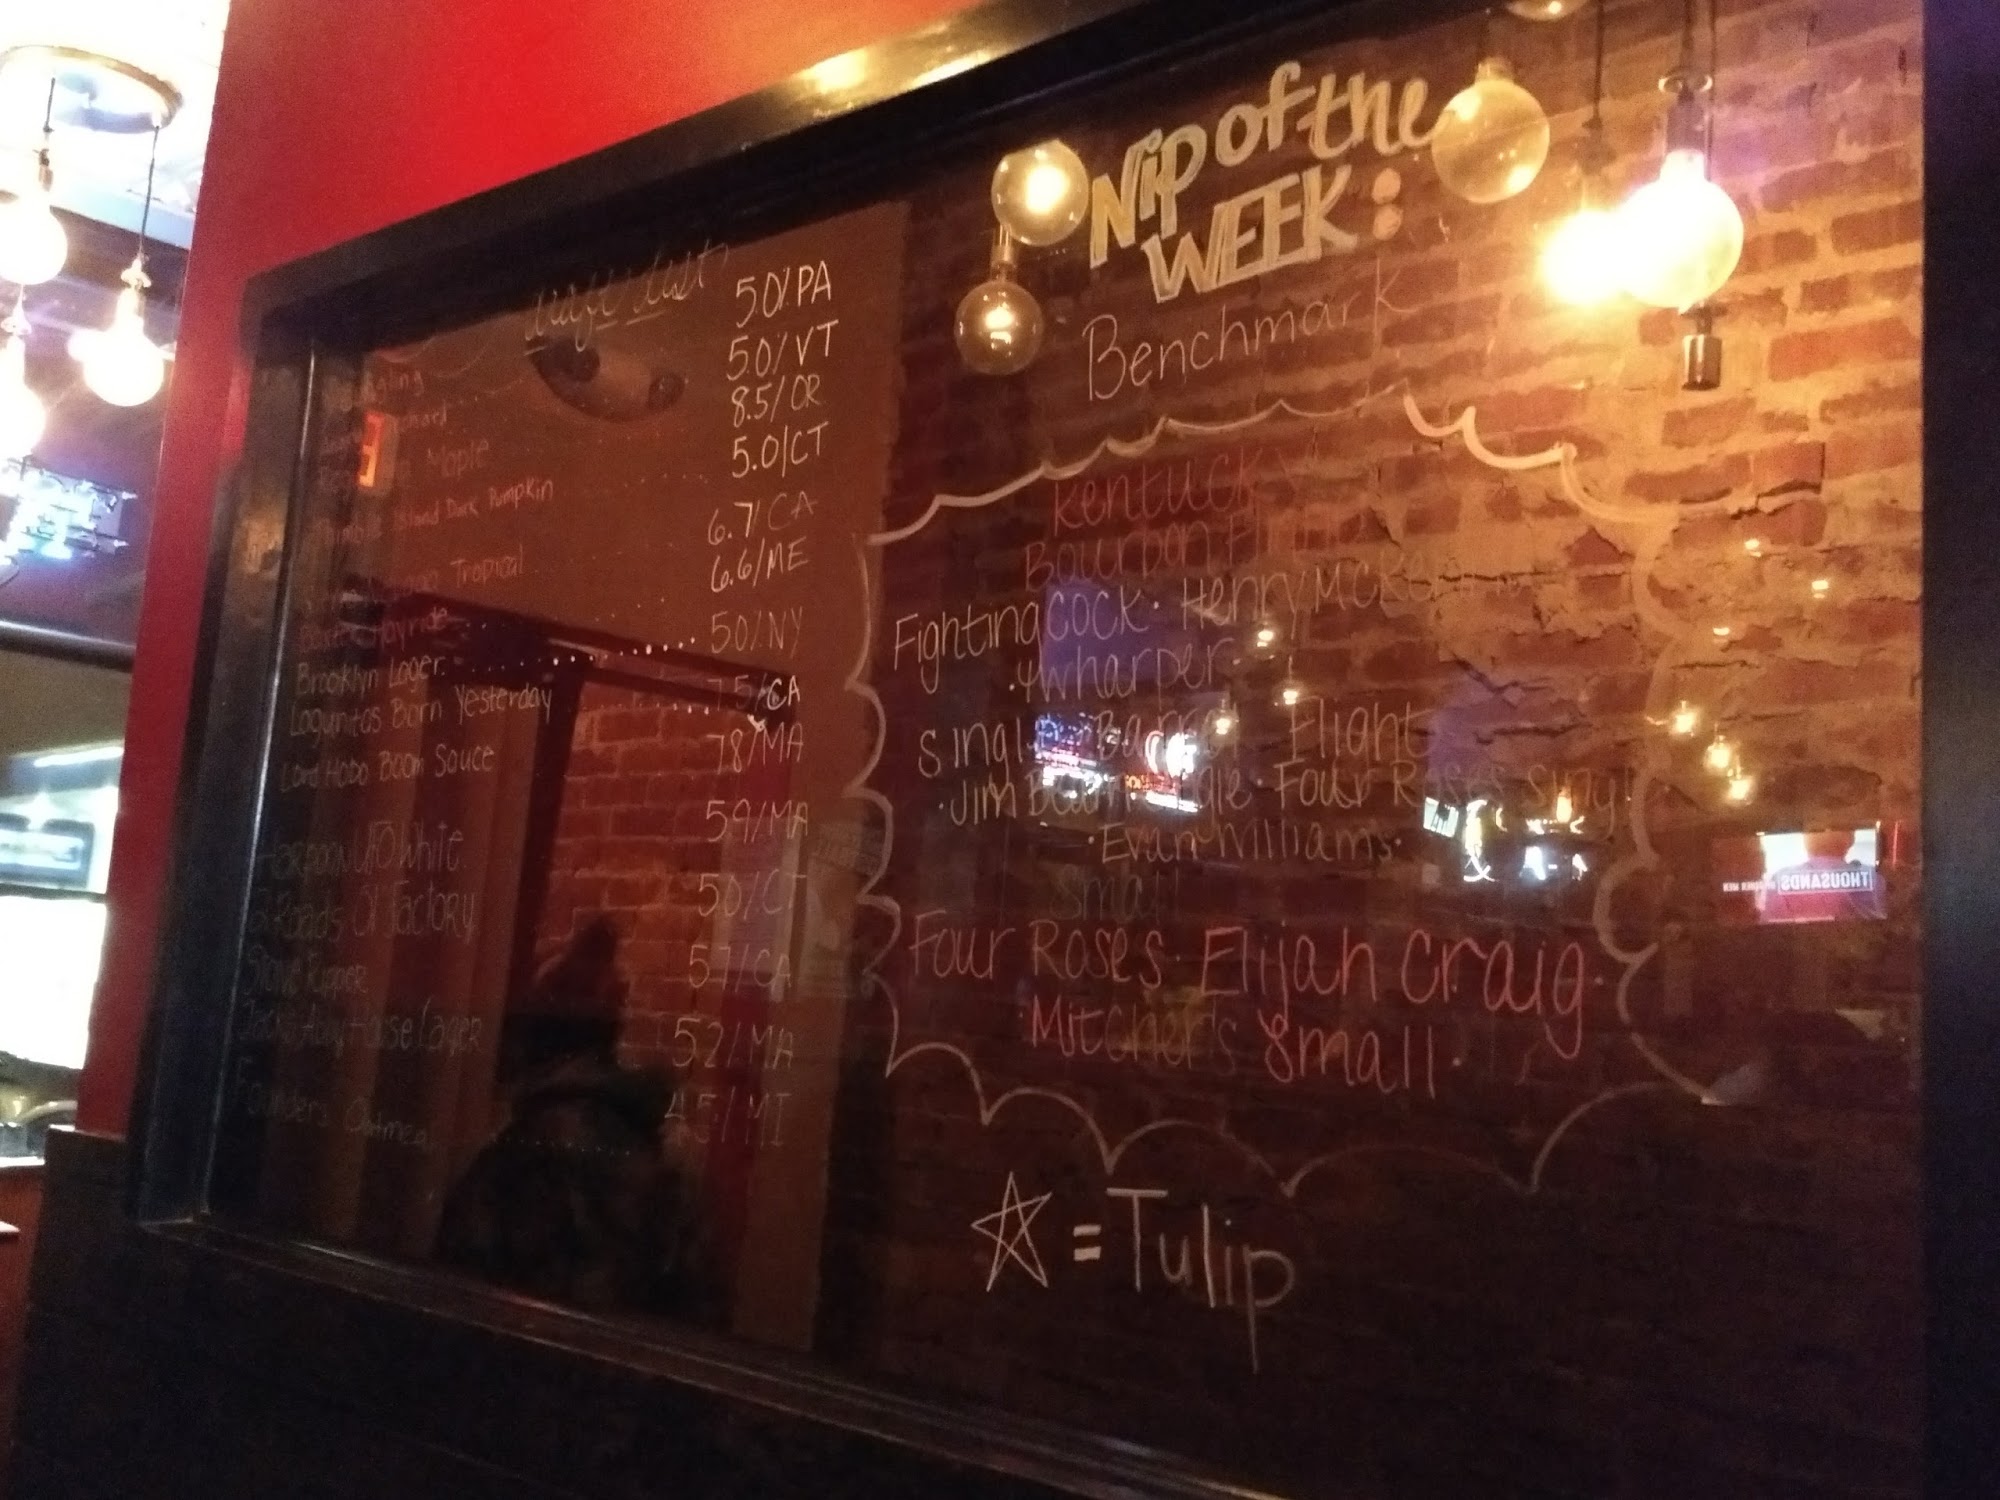 Draft List
Yuengling 5.0% PA
Orchard 5.0% VT
Maple 8.5/OR
Island Dark Pumpkin 5.0/CT
Tropical 6.7/CA
Hayride 6.6/ME
Brooklyn Lager 5.0% NY
Lagunitas Born Yesterday 7.5/CA
Lord Hobo Boom Sauce 78/MA
Harpoon UFO White 59/MA
2 Roads Ol' Factory 50%CT
Stone Ripper 57/CA
Jack's Abby House Lager 52/MA
Founders Oatmeal 45/MI
Nip of the
WEEK:
Benchmark
Kentucky
Bourbon Flight
Fighting Cock · Henry McKenna
· IW harper
Single Barrel Flight
· Jim Beam Single · Four Roses Singl
· Evan Williams ·
Small
Four Roses · Elijah Craig ·
· Mitcher's Small ·
☆ = Tulip
THOUSANDS